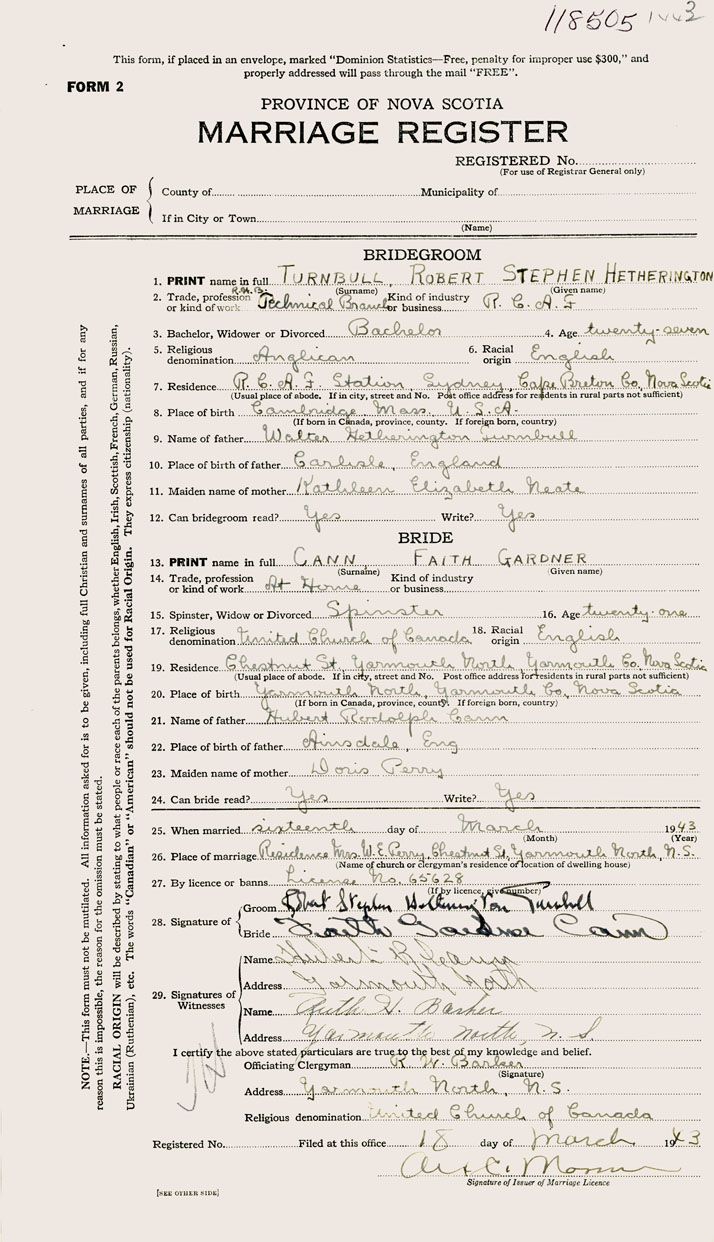 118505 1943
This form, if placed in an envelope, marked "Dominion Statistics—Free, penalty for improper use $300," and
properly addressed will pass through the mail "FREE".
FORM 2
PROVINCE OF NOVA SCOTIA
MARRIAGE REGISTER
REGISTERED No.
(For use of Registrar General only)
PLACE OF MARRIAGE
County of Municipality of
If in City or Town
(Name)
BRIDEGROOM
1. PRINT name in full TURNBULL, ROBERT STEPHEN HETHERINGTON
(Surname) (Given name)
2. Trade, profession or kind of work Technical Branch Kind of industry or business R.C.A.F.
3. Bachelor, Widower or Divorced Bachelor 4. Age twenty-seven
5. Religious denomination Anglican 6. Racial origin English
7. Residence R.C.A.F. Station, Sydney, Cape Breton Co, Nova Scotia
(Usual place of abode. If in city, street and No. Post office address for residents in rural parts not sufficient)
8. Place of birth Cambridge Mass. U.S.A.
(If born in Canada, province, county. If foreign born, country)
9. Name of father Walter Hetherington Turnbull
10. Place of birth of father Carlisle, England
11. Maiden name of mother Kathleen Elizabeth Neate
12. Can bridegroom read? Yes Write? Yes
BRIDE
13. PRINT name in full CANN FAITH GARDNER
(Surname) (Given name)
14. Trade, profession or kind of work At Home Kind of industry or business
15. Spinster, Widow or Divorced Spinster 16. Age twenty-one
17. Religious denomination United Church of Canada 18. Racial origin English
19. Residence Chestnut St, Yarmouth North, Yarmouth Co, Nova Scotia
(Usual place of abode. If in city, street and No. Post office address for residents in rural parts not sufficient)
20. Place of birth Yarmouth North, Yarmouth Co, Nova Scotia
(If born in Canada, province, county. If foreign born, country)
21. Name of father Hubert Rodolph Cann
22. Place of birth of father Ainsdale, Eng
23. Maiden name of mother Doris Perry
24. Can bride read? Yes Write? Yes
25. When married sixteenth day of March 1943
(Month) (Year)
26. Place of marriage Residence Mrs W.E. Perry, Chestnut St, Yarmouth North, N.S.
(Name of church or Clergyman's residence or location of dwelling house)
27. By licence or banns License No. 65628
(If by licence, give number)
28. Signature of
Groom Robert Stephen Hetherington Turnbull
Bride Faith Gardner Cann
29. Signatures of Witnesses
Name Hubert R Cann
Address Yarmouth North
Name Ruth H. Barker
Address Yarmouth North, N.S.
I certify the above stated particulars are true to the best of my knowledge and belief.
Officiating Clergyman R. W. Barker
(Signature)
Address Yarmouth North, N.S.
Religious denomination United Church of Canada
Registered No. Filed at this office 18 day of March 1943
Signature of Issuer of Marriage Licence
[SEE OTHER SIDE]
NOTE.—This form must not be mutilated. All information asked for is to be given, including full Christian and surnames of all parties, and if for any
reason this is impossible, the reason for the omission must be stated.
RACIAL ORIGIN will be described by stating to what people or race each of the parents belongs, whether English, Irish, Scottish, French, German, Russian,
Ukrainian (Ruthenian), etc. The words "Canadian" or "American" should not be used for Racial Origin. They express citizenship (nationality).